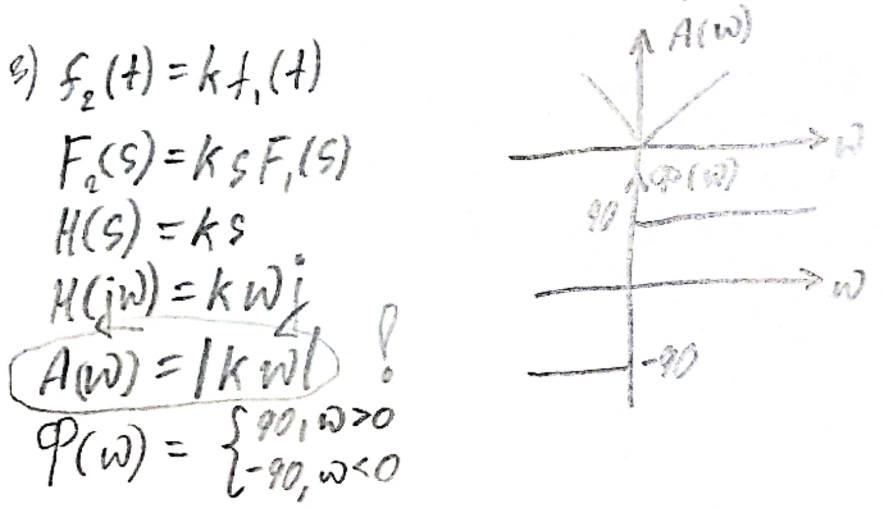 з) f₂(t) = k f₁(t)
F₂(s) = k s F₁(s)
H(s) = ks
H(jω) = kωj
A(ω) = |kω| !
φ(ω) = { 90, ω>0
-90, ω<0
A(ω)
ω
φ(ω)
90
ω
-90